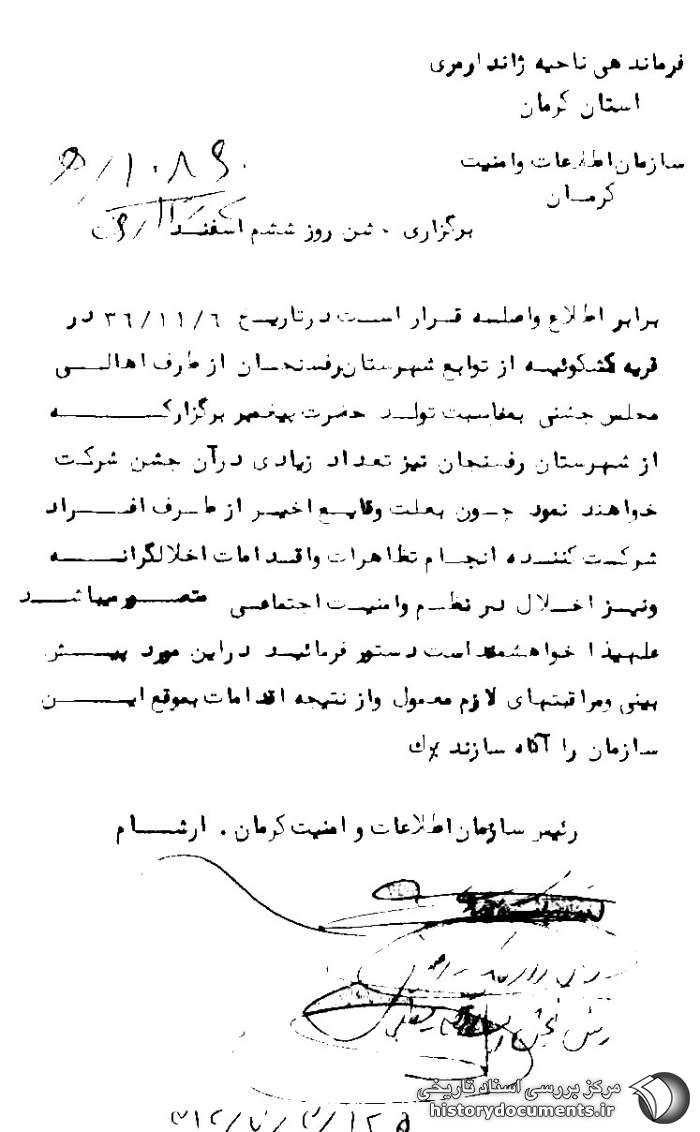 فرماندهی ناحیه ژاندارمری
استان کرمان
سازمان اطلاعات وامنیت
کرمان
ﻫ/۱۰۸۶۰
برگزاری جشن روز ششم اسفند
برابر اطلاع واصله قرار است درتاریخ ۳۶/۱۱/۶ در
قریه کشکوئیه از توابع شهرستان رفسنجان از طرف اهالی
مجلس جشنی بمناسبت تولد حضرت پیغمبر برگزارکه
از شهرستان رفسنجان نیز تعداد زیادی درآن جشن شرکت
خواهند نمود چون بعلت وقایع اخیر از طرف افراد
شرکت کننده انجام تظاهرات واقدامات اخلالگرانه
ونیز اخلال در نظم وامنیت اجتماعی متصور میباشد
علیهذا خواهشمند است دستور فرمائید دراین مورد پیش
بینی ومراقبتهای لازم معمول واز نتیجه اقدامات بموقع این
سازمان را آگاه سازند
رئیس سازمان اطلاعات و امنیت کرمان . ارشام
مرکز بررسی اسناد تاریخی
historydocuments.ir